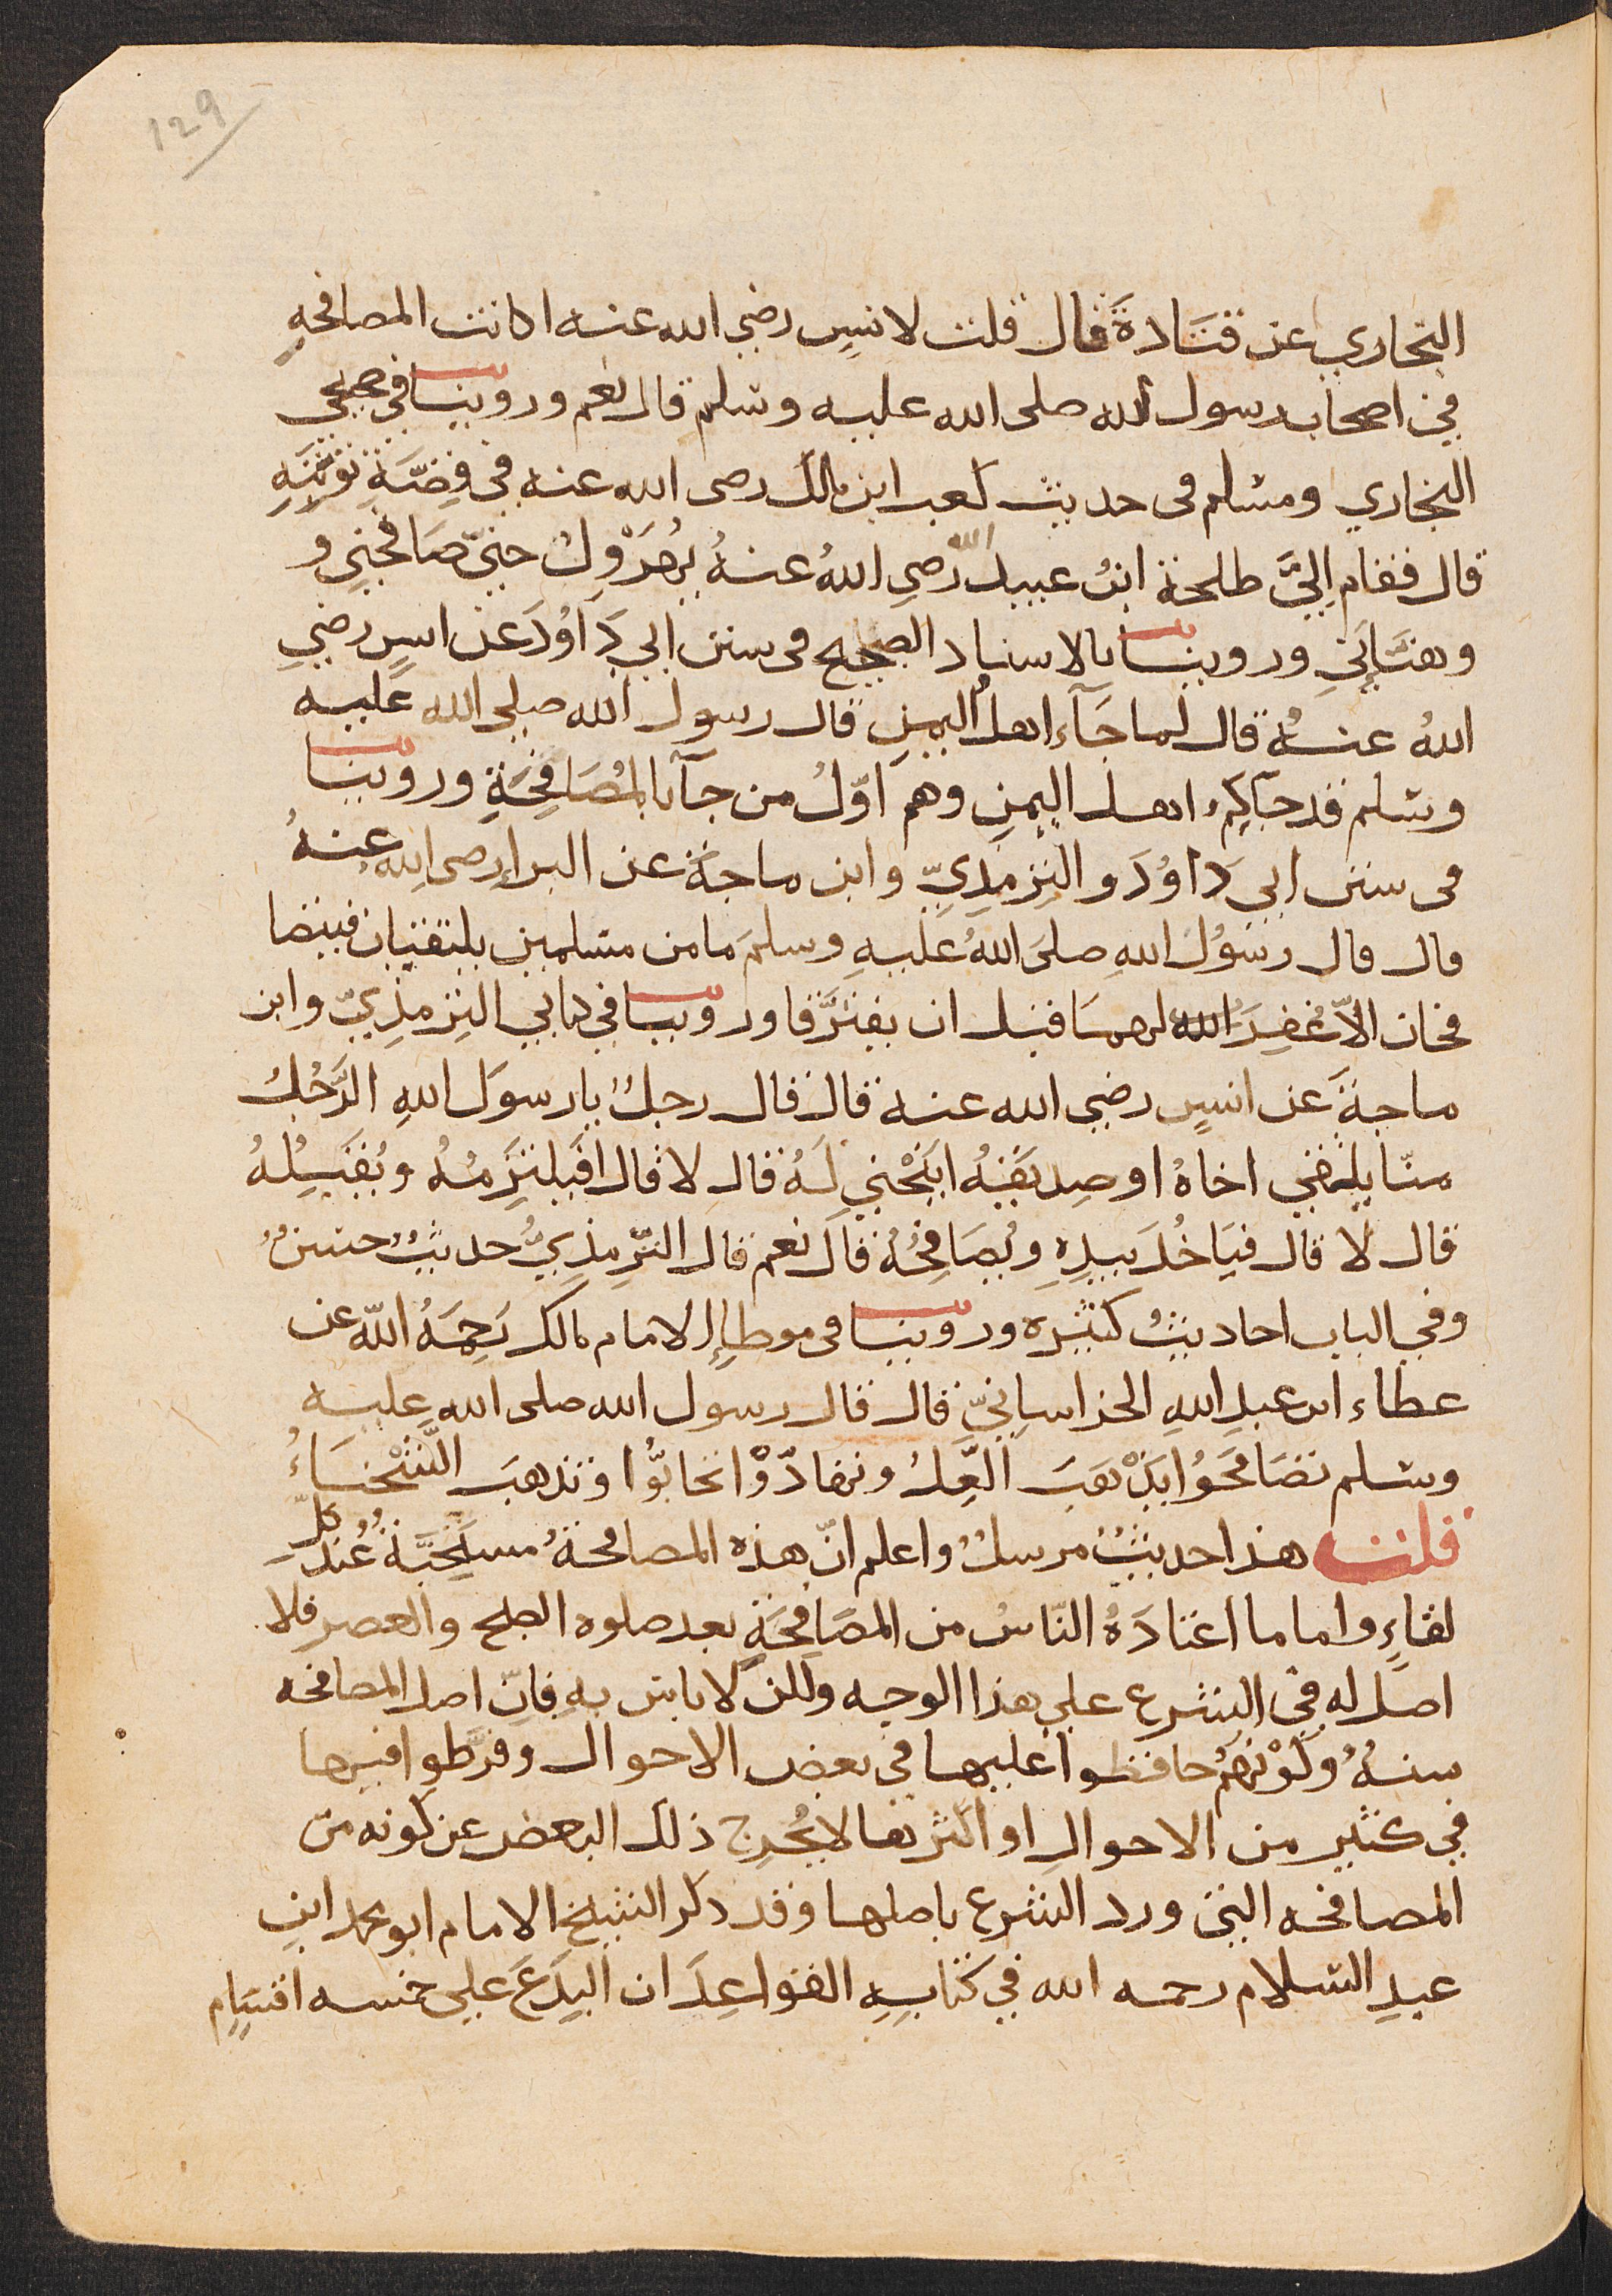 129
البخاري عن قتَادةَ قال قلت لانسٍ رضي الله عنه اكانت المصافحةِ
في اصحاب رسول الله صلى الله عليه وسلم قال نعم وروينا في صحيحي
البخاري ومسلم في حديث كعب ابن مالك رضى الله عنه في قِصَّةِ توبَتِهِ
قال فقام اِليَّ طلحة ابنُ عبيد الله رَضي اللهُ عنهُ يُهَرْوِلُ حتيّ صَافحنِي و
وهنَّأنِي وروينا بالاسناد الصحيح في سنن ابي دَاوُدَ عن انسٍ رضيِ
اللهُ عنهُ قال لما جَآء اهلُ اليمنِ قال رسول الله صلي الله عليه
وسلم قد جآكم اهل اليمنِ وهم اوّلُ من جآء بالمُصَافِحَةِ وروينا
في سنن ابي دَاوُدَ والتِرْمِذِيِّ وابن ماجةَ عن البراءِ رضى الله عنهُ
قال قال رسُوْلُ اللهِ صلىَ اللهُ عليهِ وسلمَ ما من مسلمين يلتقيان فيتصا
فحان الاّ غُفِرَ الله لهما قبل ان يفترَّقا وروينا في كتابي التِرْمِذِيّ وابن
ماجةَ عن انسٍ رضي الله عنه قال قال رجلٌ يا رسوَل اللهِ الرَّجُلُ
منّا يلقي اخاهُ او صِديقَهُ اَيَنْحْنِي لَهُ قال لا قال افَيلتزِمُهُ ويُقَبِّلُهُ
قال لا قال فيَاخُذَ بيدِهِ ويُصَافِحُهُ قال نعم قال التّرِمِذِيُّ حديثٌ حسنٌ
وفي الباب احاديثُ كثيره وروينا في موطإِ الامام مالك رَحِمَهُ اللّه عن
عطاء ابن عبدِ اللهِ الخراسانِيِّ قال قال رسول الله صلى الله عليه
وسلم تصَافَحُوْا يَذْهَبَ الغِلُّ وتهادَوْا تحابُّوا وتذهبَ الشَّحْنَاءُ
قلت هذا حديثٌ مرسلٌ واعلم انّ هذه المصافحةُ مستحَبَّةٌ عُند كلِّ
لقاءٍ واما ما اعتادَهُ النّاسُ من المصَافحَةِ بعد صلوه الصبح والعصر فلا
اصل له في الشرع علي هذا الوجه ولكن لا باس به فاِنّ اصل المصافحه
سنهٌ وكوْنُهُم حافظوا عليها في بعض الاحوال وفرَّطوا فيها
في كثير من الاحوالِ او اكثرها لا يُخرِج ذلك البعض عن كونه من
المصافحه التي ورد الشرع باصلها وقد ذكر الشيخ الامام ابو محمد ابن
عبدِ السلام رحمه الله في كتابِهِ القواعِدَ ان البِدَعَ علي خمسه اقسَامٍ